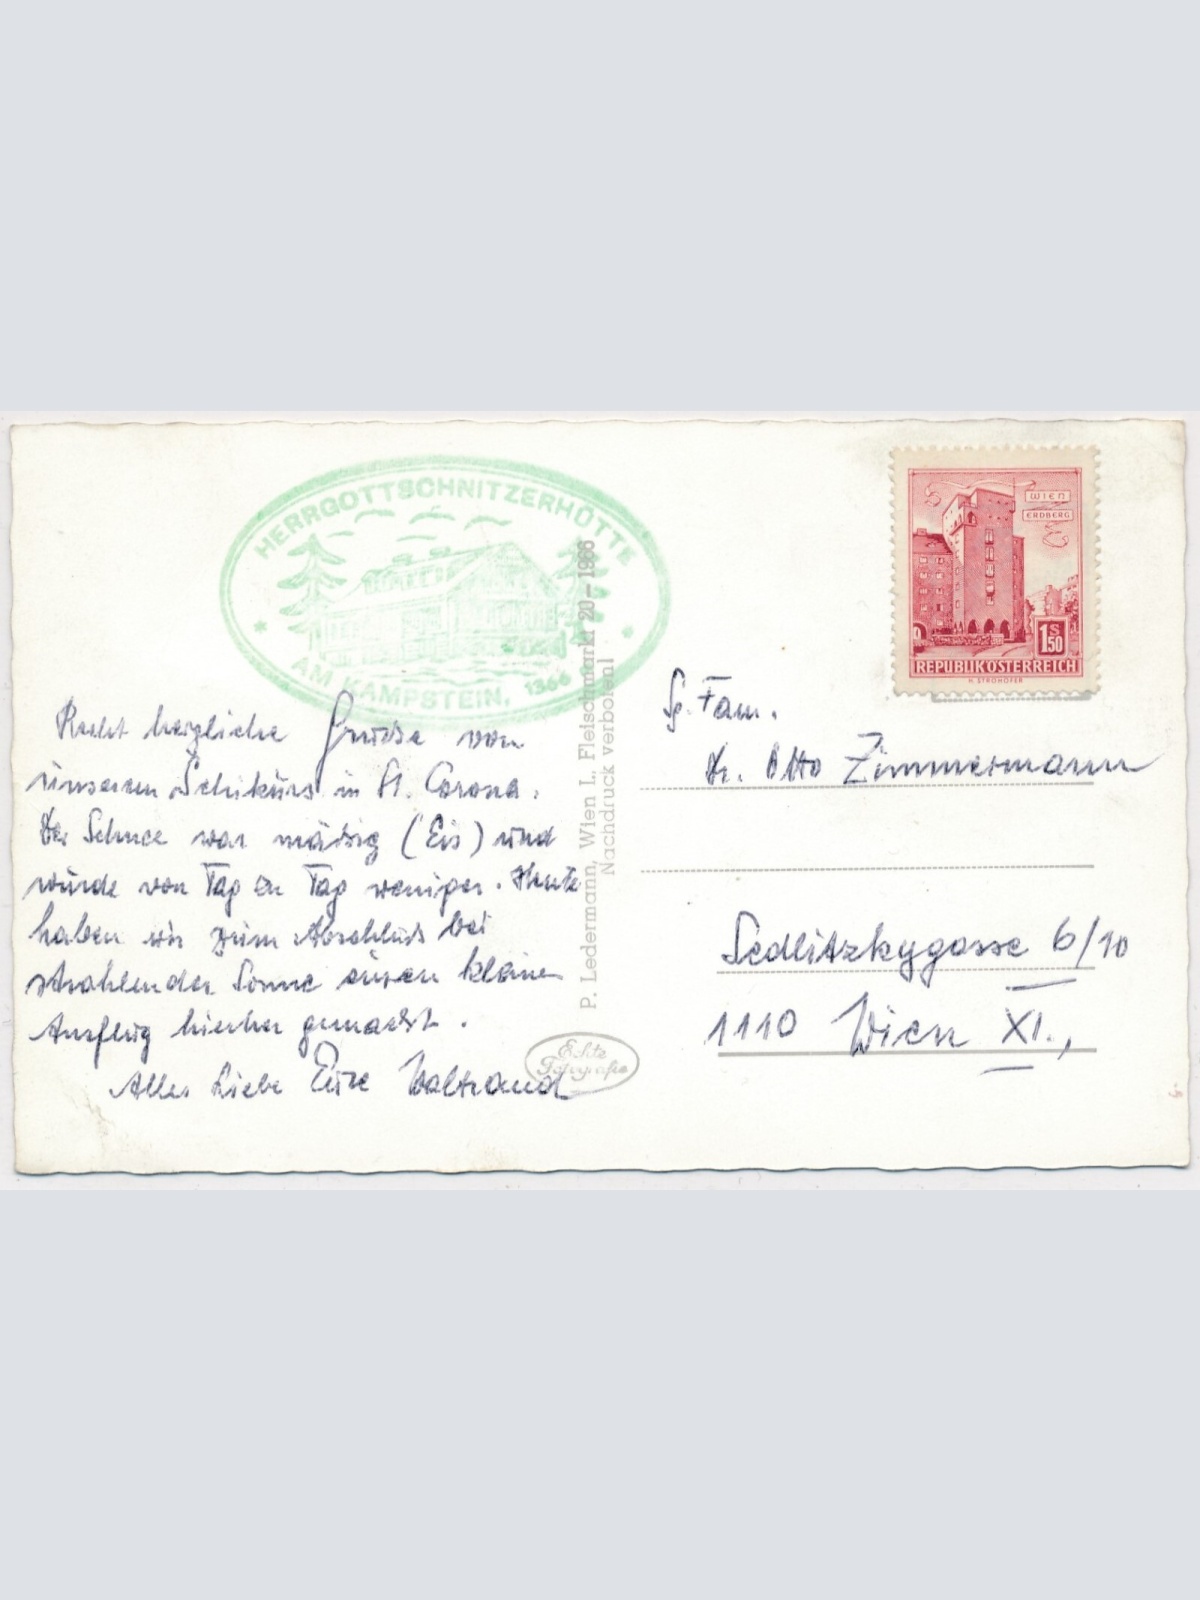 HERRGOTTSCHNITZERHÜTTE
AM KAMPSTEIN, 1366
Recht herzliche Grüsse von
unserem Schikurs in St. Corona.
Der Schnee war mäßig (Eis) und
wurde von Tag zu Tag weniger. Heute
haben wir zum Abschluß bei
strahlender Sonne einen kleinen
Ausflug hierher gemacht.
Alles Liebe Eure Waltraud
P. Ledermann, Wien I., Fleischmarkt 20 - 1966
Nachdruck verboten!
Echte
Fotografie
WIEN
ERDBERG
1S50
REPUBLIK ÖSTERREICH
H. STROHOFER
Sp. Fam.
Dr. Otto Zimmermann
Sedlitzkygasse 6/10
1110 Wien XI.,